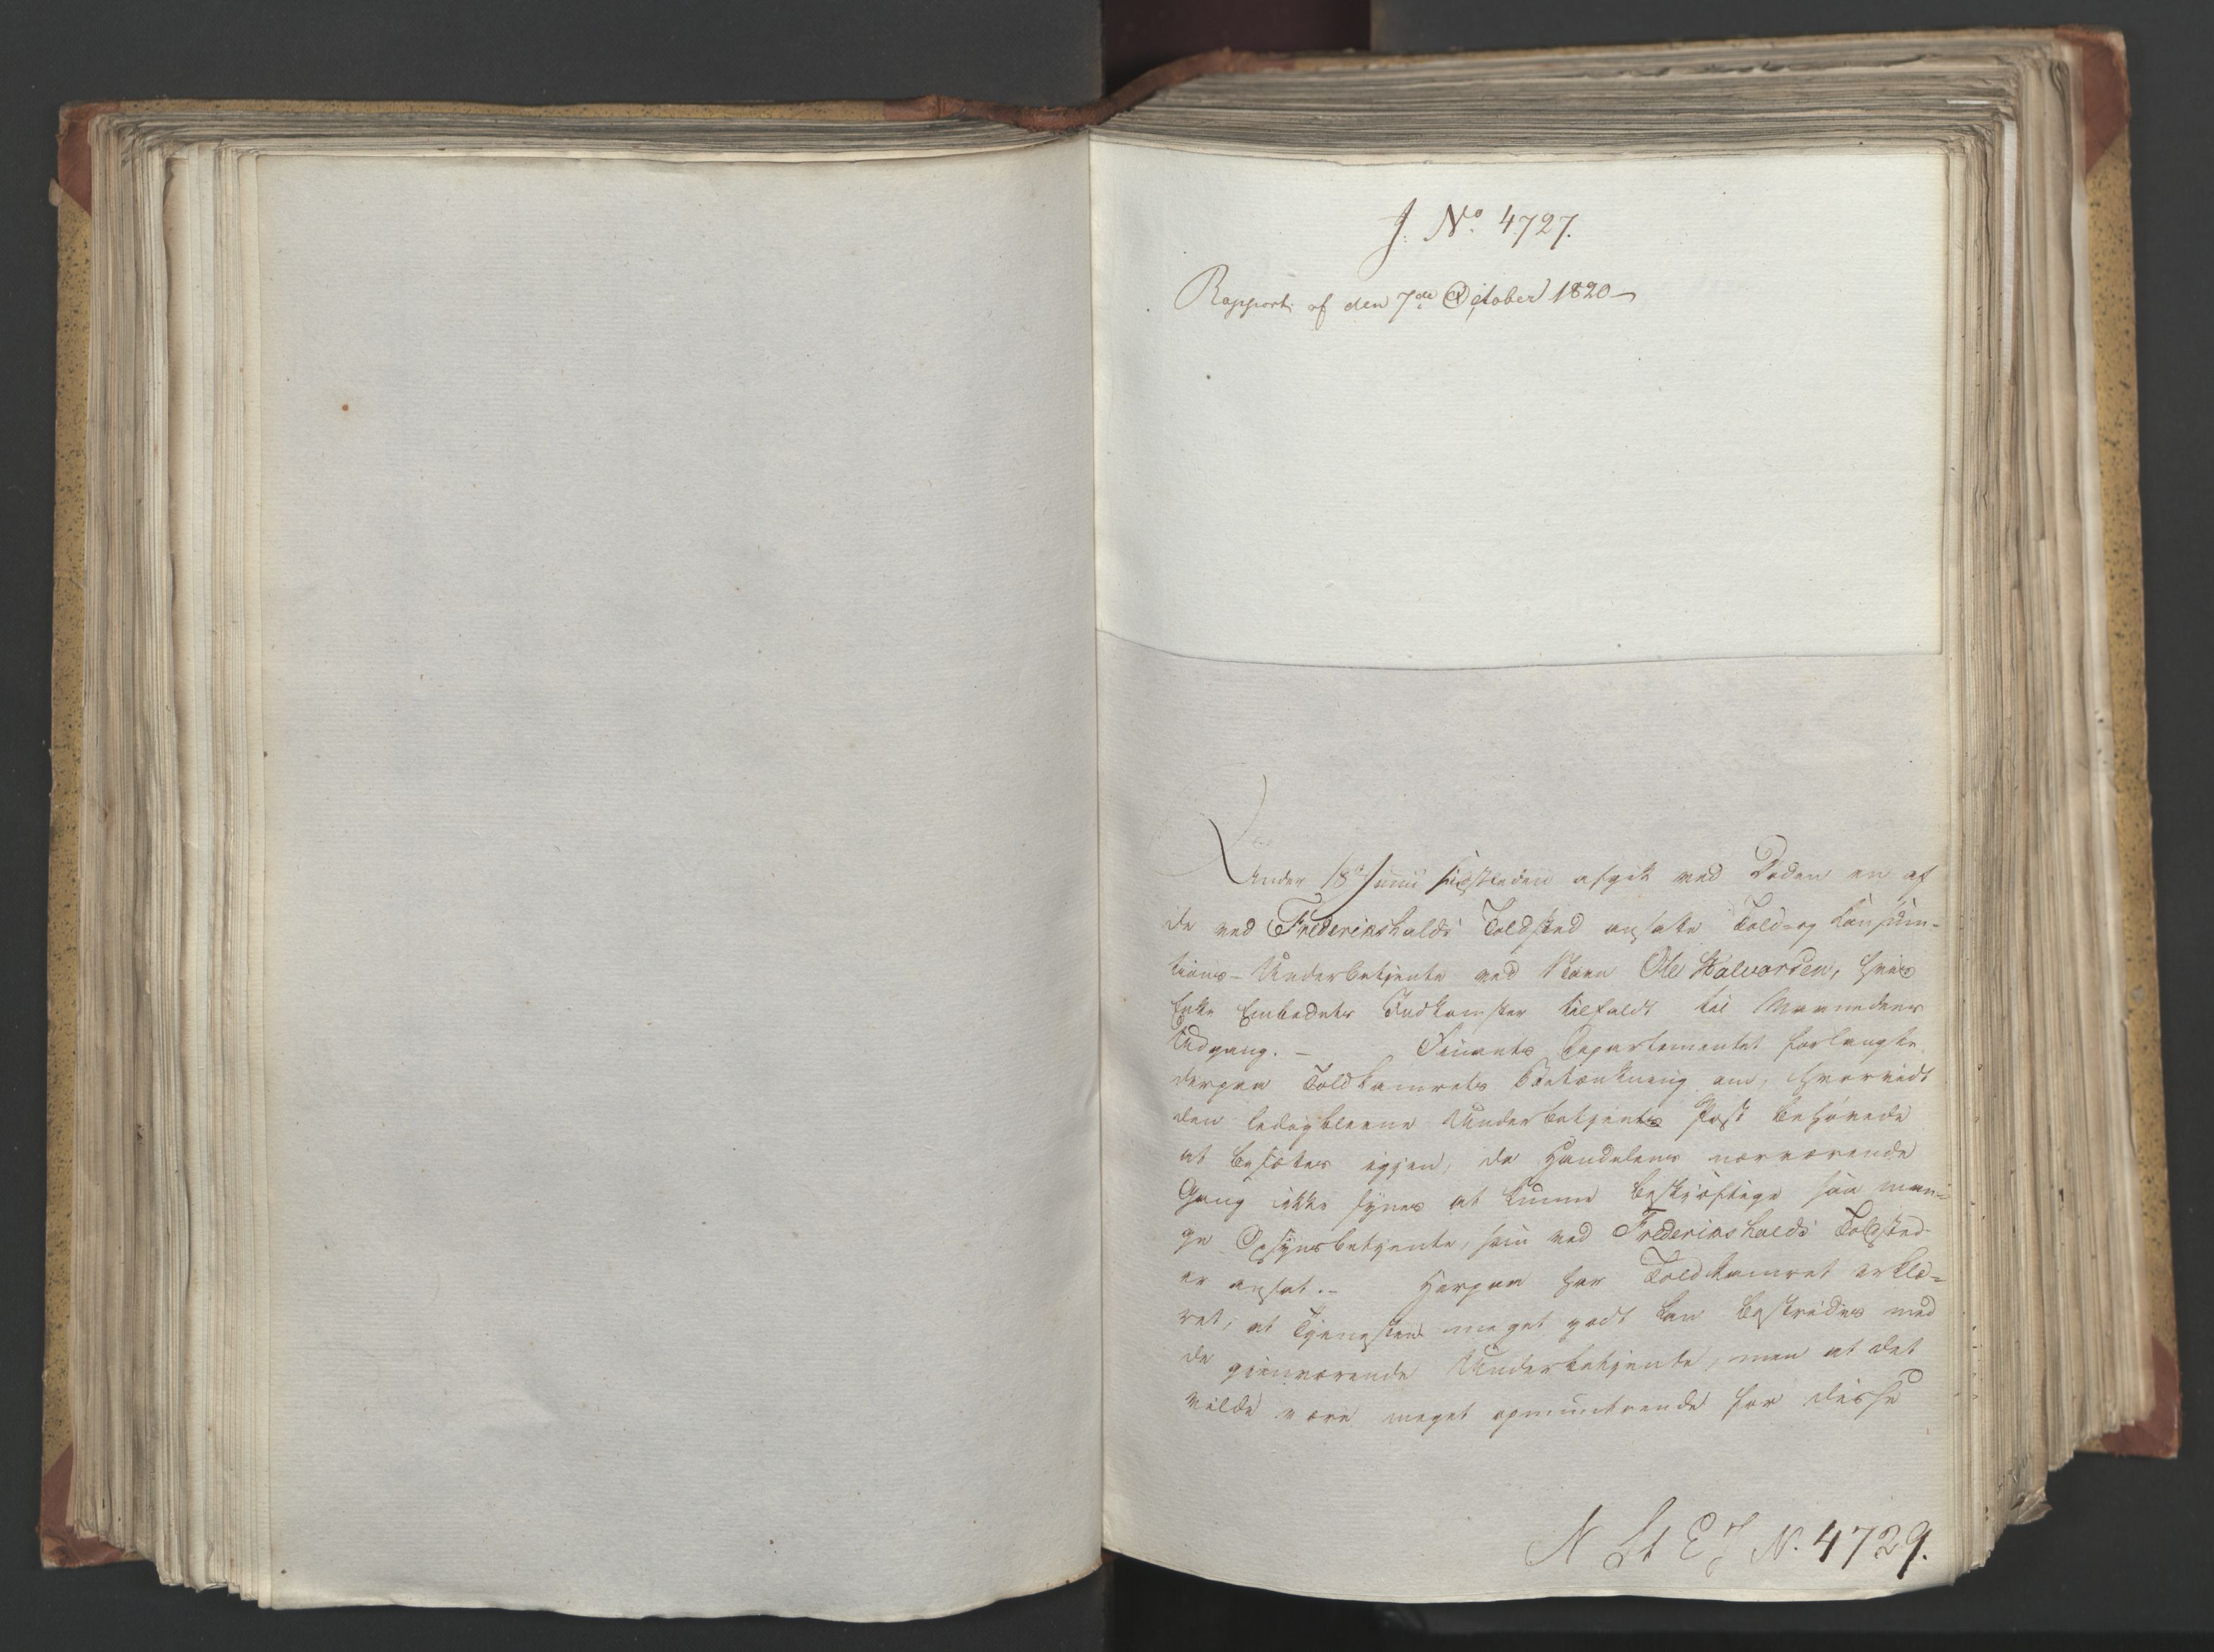 J. No. 4727.
Rapport af den 7de October 1820 –
Under 18de Junii sidstleden afgik ved Døden en af
de ved Frederikshalds Toldsted ansatte Told- og Consum-
tions-Underbetjente ved Navn Ole Halvorsen, hvis
Enke Embedets Indkomster tilfaldt til Maanedens
Udgang. – Finants Departementet forlangte
derpaa Toldkamrets Betænkning om, hvorvidt
den ledigblevne Underbetjents Post behøvede
at besættes igjen, da Handelens nærværende
Gang ikke synes at kunne beskjæftige saa man-
ge Opsynsbetjente, som ved Frederikshalds Toldsted
er ansat. – Herpaa har Toldkamret erklæ-
ret, at Tjenesten meget godt kan bestrides med
de gjenværende Underbetjente, men at det
vilde være meget opmuntrende for disse
N. 4729.